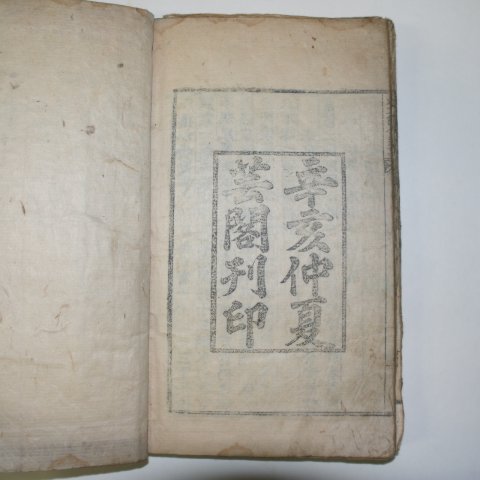 辛亥仲夏
芸閣刊印